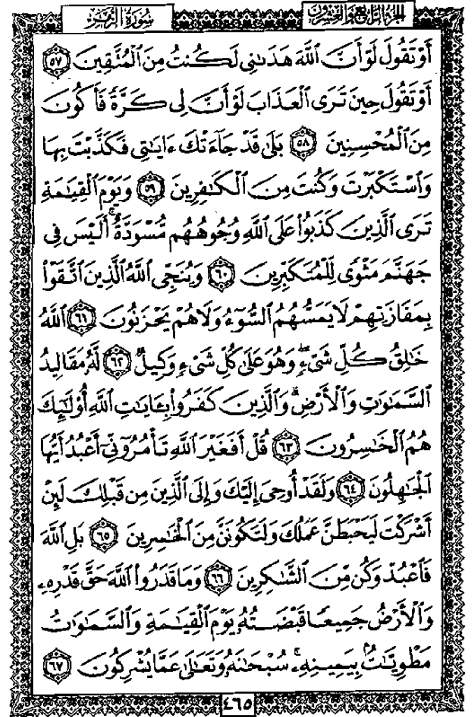 سُورَةُ الزُّمَرِ الجزء الرابع والعشرون
أَوْ تَقُولَ لَوْ أَنَّ اللَّهَ هَدَىٰنِي لَكُنتُ مِنَ الْمُتَّقِينَ ٥٧
أَوْ تَقُولَ حِينَ تَرَى الْعَذَابَ لَوْ أَنَّ لِي كَرَّةً فَأَكُونَ
مِنَ الْمُحْسِنِينَ ٥٨ بَلَىٰ قَدْ جَاءَتْكَ ءَايَٰتِي فَكَذَّبْتَ بِهَا
وَاسْتَكْبَرْتَ وَكُنتَ مِنَ الْكَٰفِرِينَ ٥٩ وَيَوْمَ الْقِيَٰمَةِ
تَرَى الَّذِينَ كَذَبُوا۟ عَلَى اللَّهِ وُجُوهُهُم مُّسْوَدَّةٌ ۚ أَلَيْسَ فِي
جَهَنَّمَ مَثْوًى لِّلْمُتَكَبِّرِينَ ٦٠ وَيُنَجِّي اللَّهُ الَّذِينَ اتَّقَوْا۟
بِمَفَازَتِهِمْ لَا يَمَسُّهُمُ السُّوءُ وَلَا هُمْ يَحْزَنُونَ ٦١ اللَّهُ
خَٰلِقُ كُلِّ شَيْءٍ ۖ وَهُوَ عَلَىٰ كُلِّ شَيْءٍ وَكِيلٌ ٦٢ لَّهُ مَقَالِيدُ
السَّمَٰوَٰتِ وَالْأَرْضِ ۗ وَالَّذِينَ كَفَرُوا۟ بِـَٔايَٰتِ اللَّهِ أُو۟لَٰئِكَ
هُمُ الْخَٰسِرُونَ ٦٣ قُلْ أَفَغَيْرَ اللَّهِ تَأْمُرُونِّي أَعْبُدُ أَيُّهَا
الْجَٰهِلُونَ ٦٤ وَلَقَدْ أُوحِيَ إِلَيْكَ وَإِلَى الَّذِينَ مِن قَبْلِكَ لَئِنْ
أَشْرَكْتَ لَيَحْبَطَنَّ عَمَلُكَ وَلَتَكُونَنَّ مِنَ الْخَٰسِرِينَ ٦٥ بَلِ اللَّهَ
فَاعْبُدْ وَكُن مِّنَ الشَّٰكِرِينَ ٦٦ وَمَا قَدَرُوا۟ اللَّهَ حَقَّ قَدْرِهِ
وَالْأَرْضُ جَمِيعًا قَبْضَتُهُ يَوْمَ الْقِيَٰمَةِ وَالسَّمَٰوَٰتُ
مَطْوِيَّٰتٌ بِيَمِينِهِ ۚ سُبْحَٰنَهُ وَتَعَٰلَىٰ عَمَّا يُشْرِكُونَ ٦٧
٤٦٥